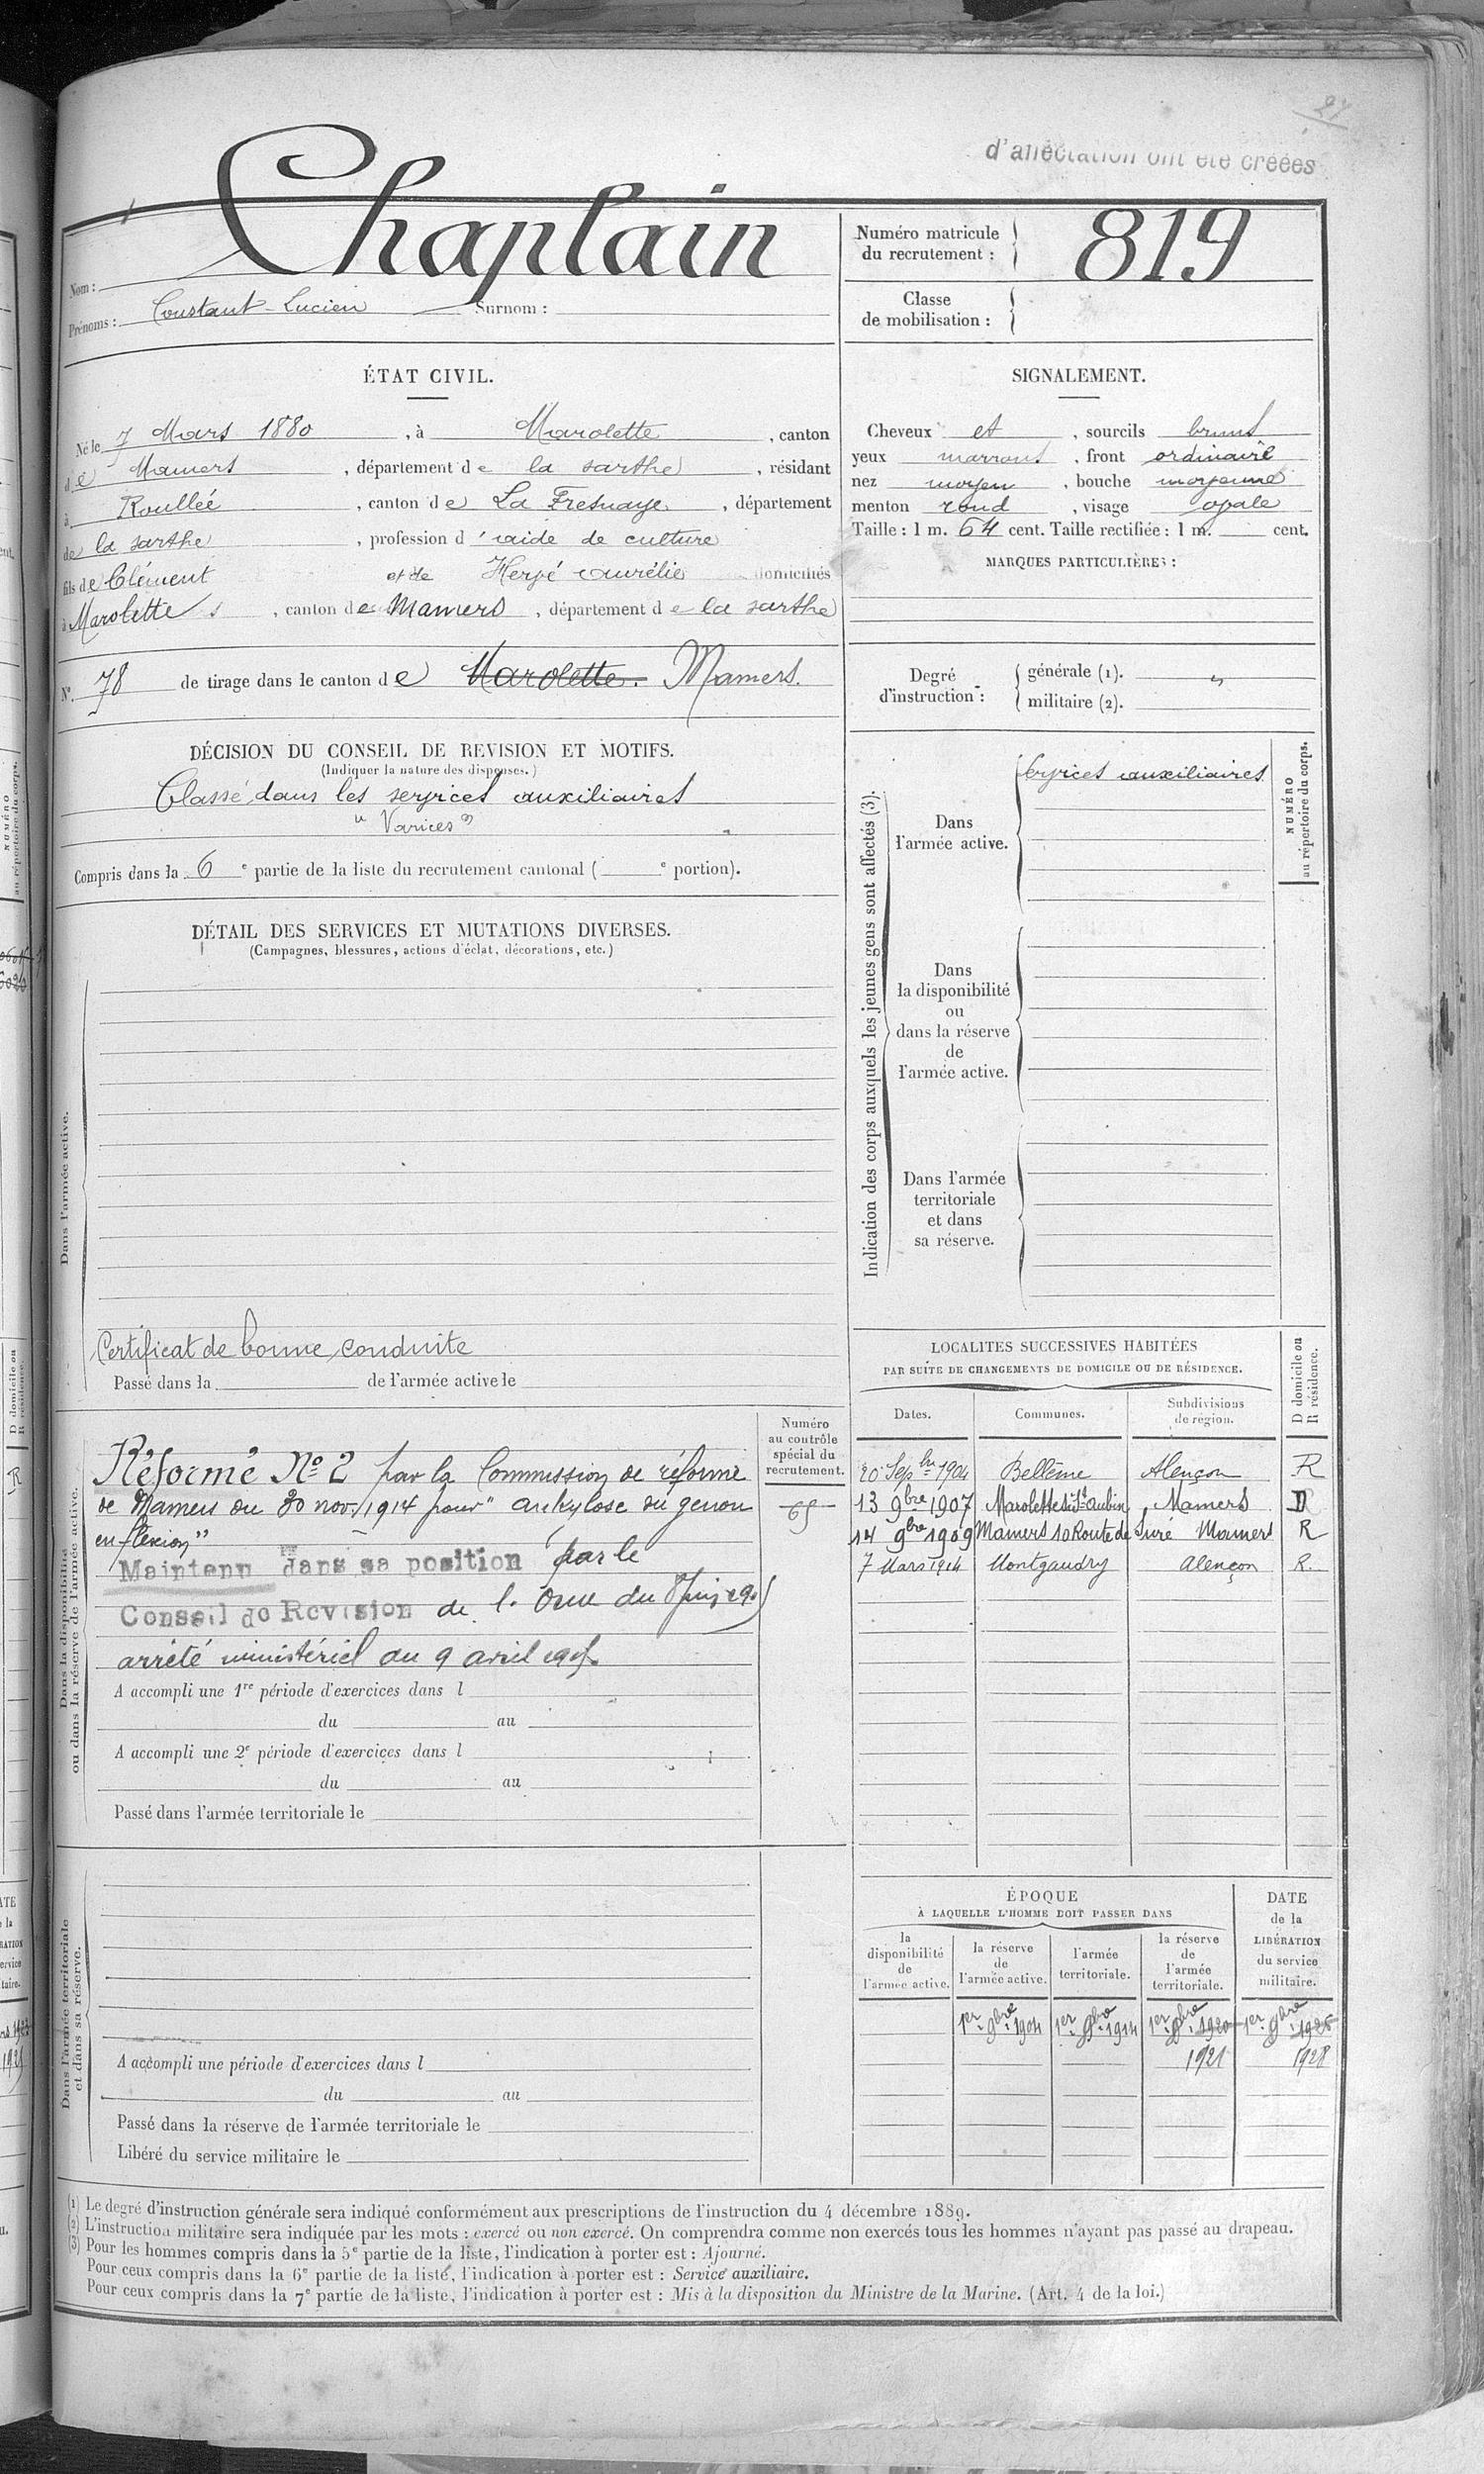 d'affectation ont été créées
Nom : Chaplain
Prénoms : Constant-Lucien Surnom :
Numéro matricule du recrutement : 819
Classe de mobilisation :
ÉTAT CIVIL.
Né le 7 Mars 1880, à Marolette, canton
de Mamers, département de la sarthe, résidant
à Roullée, canton de La Fresnaye, département
de la sarthe, profession d'aide de culture
fils de Clément et de Hervé aurélie domiciliés
à Marolette, canton de Mamers, département de la sarthe
N° 78 de tirage dans le canton de Marolette. Mamers.
SIGNALEMENT.
Cheveux et, sourcils bruns
yeux marrons, front ordinaire
nez moyen, bouche moyenne
menton rond, visage ovale
Taille : 1 m. 64 cent. Taille rectifiée : 1 m. cent.
MARQUES PARTICULIÈRES :
Degré d'instruction :
générale (1). "
militaire (2).
DÉCISION DU CONSEIL DE REVISION ET MOTIFS.
(Indiquer la nature des dispenses.)
Classé dans les services auxiliaires
"Varices"
Compris dans la 6e partie de la liste du recrutement cantonal ( e portion).
DÉTAIL DES SERVICES ET MUTATIONS DIVERSES.
(Campagnes, blessures, actions d'éclat, décorations, etc.)
Dans l'armée active.
Certificat de bonne conduite
Passé dans la de l'armée active le
Indication des corps auxquels les jeunes gens sont affectés (3).
Dans l'armée active.
Services auxiliaires
NUMÉRO au répertoire du corps.
Dans la disponibilité ou dans la réserve de l'armée active.
Dans l'armée territoriale et dans sa réserve.
Dans la disponibilité ou dans la réserve de l'armée active.
Numéro au contrôle spécial du recrutement.
65
Réformé No 2 par la Commission de réforme
de Mamers du 30 nov. 1914 pour "ankylose du genou
en flexion"
Maintenu dans sa position par le
Conseil de Revision de l'Orne du
arrêté ministériel du 9 avril
A accompli une 1re période d'exercices dans l
du au
A accompli une 2e période d'exercices dans l
du au
Passé dans l'armée territoriale le
LOCALITES SUCCESSIVES HABITÉES
PAR SUITE DE CHANGEMENTS DE DOMICILE OU DE RÉSIDENCE.
Dates. Communes. Subdivisions de région. D domicile ou R résidence.
20 Sepbre 1904 Bellême Alençon R
13 9bre 1907 Marolette St Aubin Mamers D
14 9bre 1909 Mamers 10 Route de Suré Mamers R
7 Mars 1914 Montgaudry Alençon R.
Dans l'armée territoriale et dans sa réserve.
A accompli une période d'exercices dans l
du au
Passé dans la réserve de l'armée territoriale le
Libéré du service militaire le
ÉPOQUE
À LAQUELLE L'HOMME DOIT PASSER DANS
DATE de la LIBÉRATION du service militaire.
la disponibilité de l'armée active.
la réserve de l'armée active.
l'armée territoriale.
la réserve de l'armée territoriale.
1er 9bre 1904 1er 9bre 1914 1er 9bre 1920 1er 9bre 1926
1921 1928
(1) Le degré d'instruction générale sera indiqué conformément aux prescriptions de l'instruction du 4 décembre 1889.
(2) L'instruction militaire sera indiquée par les mots : exercé ou non exercé. On comprendra comme non exercés tous les hommes n'ayant pas passé au drapeau.
(3) Pour les hommes compris dans la 5e partie de la liste, l'indication à porter est : Ajourné.
Pour ceux compris dans la 6e partie de la liste, l'indication à porter est : Service auxiliaire.
Pour ceux compris dans la 7e partie de la liste, l'indication à porter est : Mis à la disposition du Ministre de la Marine. (Art. 4 de la loi.)